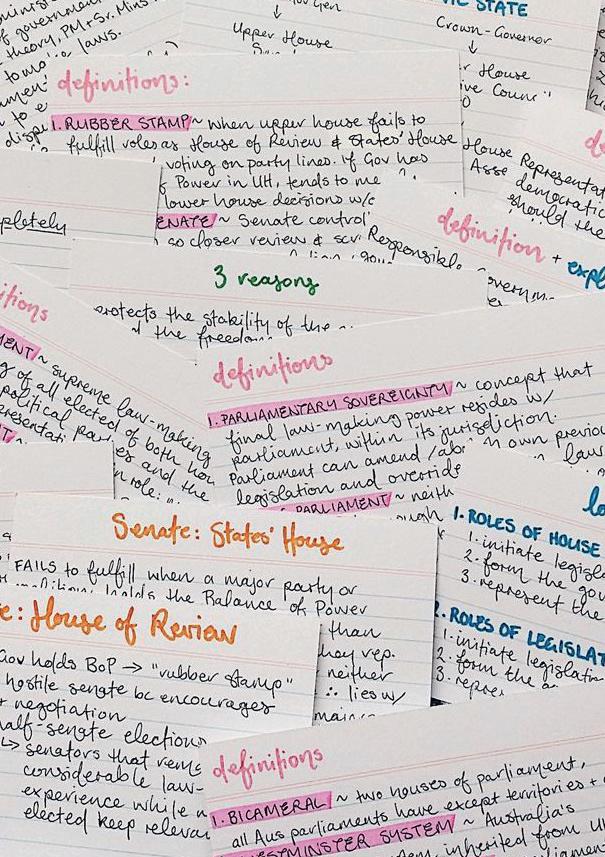 of government
theory, PM + Sr. Mins
laws.
Upper House
STATE
Crown-Governor
House
definitions:
1. RUBBER STAMP ~ when upper house fails to
fulfill roles as House of Review & States' House
voting on party lines. If Gov has
Power in UH, tends to me
lower house decisions w/o
ENATE ~ Senate control
so closer review &
House Representat
Asse democratic
should the
pletely
definition + expl
Responsible
overnm
3 reasons
protects the stability of the
the freedom
itions
MENT ~ supreme law-making
g of all elected of both hou
political parties and the
presentati
n role:
definitions
1. PARLIAMENTARY SOVEREIGNTY ~ concept that
final law-making power resides w/
parliament, within its jurisdiction.
Parliament can amend / abo
own previou
legislation and override
law
PARLIAMENT ~ neith
ough
Senate: States' House
FAILS to fulfill when a major party or
holds the Balance of Power
than
may rep.
neither
∴ lies w/
1. ROLES OF HOUSE
1. initiate legisla
2. form the gov
3. represent the
2. ROLES OF LEGISLAT
1. initiate legislation
2. form the
3. repres
e: House of Review
Gov holds BoP → "rubber stamp"
hostile senate bc encourages
+ negotiation
half-senate elections
↳ senators that rema
considerable law-
experience while n
elected keep relevan
definitions
1. BICAMERAL ~ two houses of parliament,
all Aus parliaments have except territories +
WESTMINSTER SYSTEM ~ Australia's
inherited from U